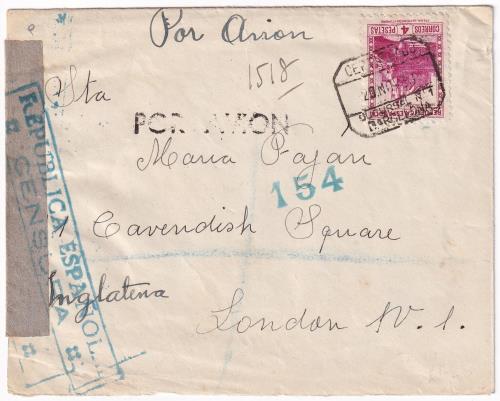 Por Avion
CORREOS 4 PESETAS
1518
Sta
POR AVION
Maria Pajan
154
1 Cavendish Square
Inglaterra
London W. 1.
REPUBLICA ESPAÑOL
CENSURA